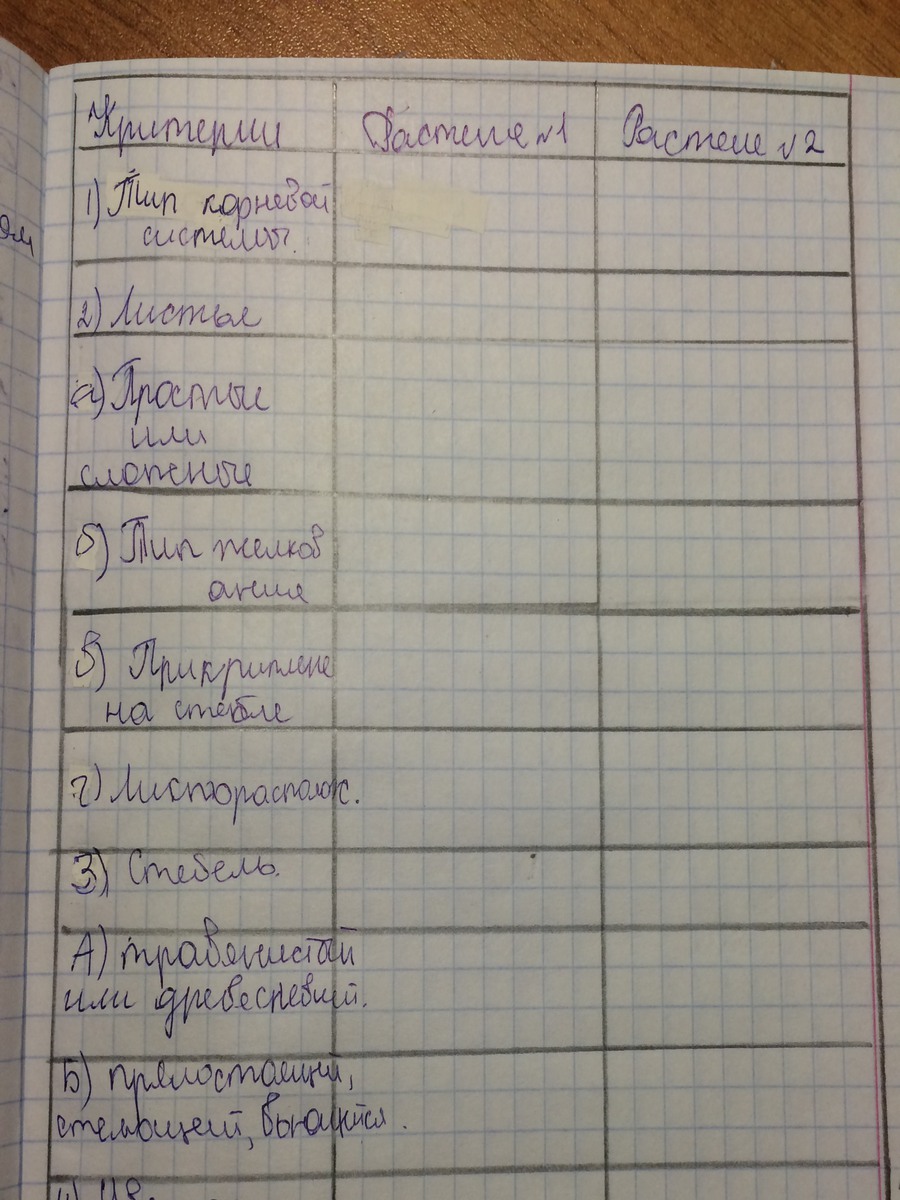 Критерии
Растение №1
Растение №2
1) Тип корневой
системы.
2) Листья
а) Простые
или
сложные
б) Тип желков
ания
в) Прикрипление
на стебле
г) Листорасполож.
3) Стебель.
А) травянистый
или древесневший.
Б) прямостоящий,
стелющеий, вьющийся.